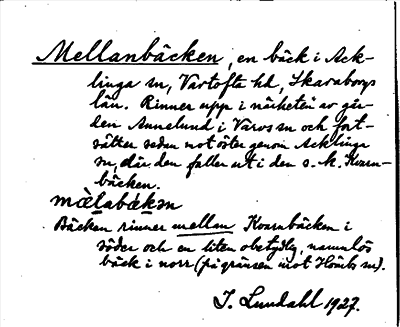 Mellanbäcken, en bäck i Ack-
linga sn, Vartofta hd, Skaraborgs
län. Rinner upp i närheten av går-
den Annelund i Varvs sn och fort-
sätter sedan mot öster genom Acklinga
sn, där den faller ut i den s. k. Kvarn-
bäcken.
mælabækən
Bäcken rinner mellan Kvarnbäcken i
söder och en liten obetydlig, namnlös
bäck i norr (på gränsen mot Hömbs sn).
I. Lundahl 1927.